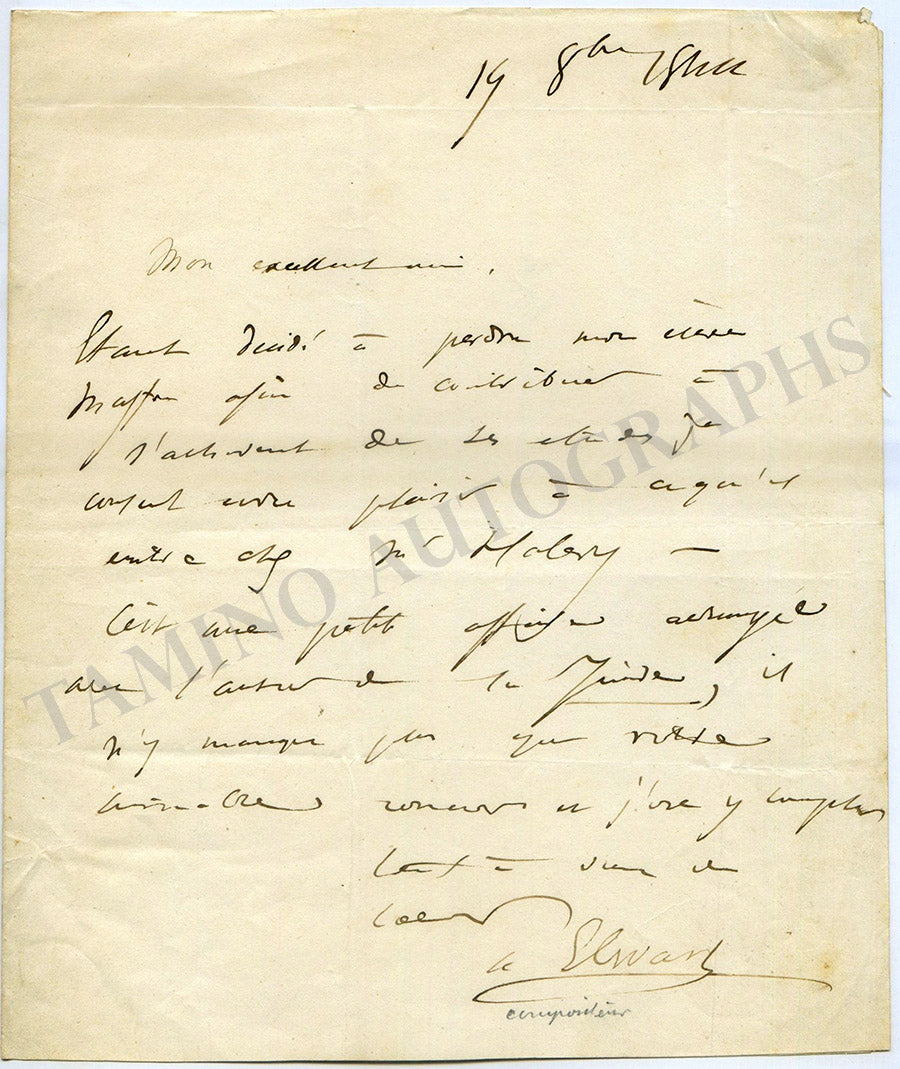 19 8bre 1844
Mon excellent ami,
Etant décidé à perdre mon élève
Masson afin de contribuer à
l'achèvement de ses études je
consent avec plaisir à ce qu'il
entre chez Mr Halevy —
C'est une petite affaire arrangée
avec l'auteur de la Juive, il
n'y manque plus que votre
concours et j'ose y compter
tout à vous de
coeur
a Elwart
compositeur
TAMINO AUTOGRAPHS